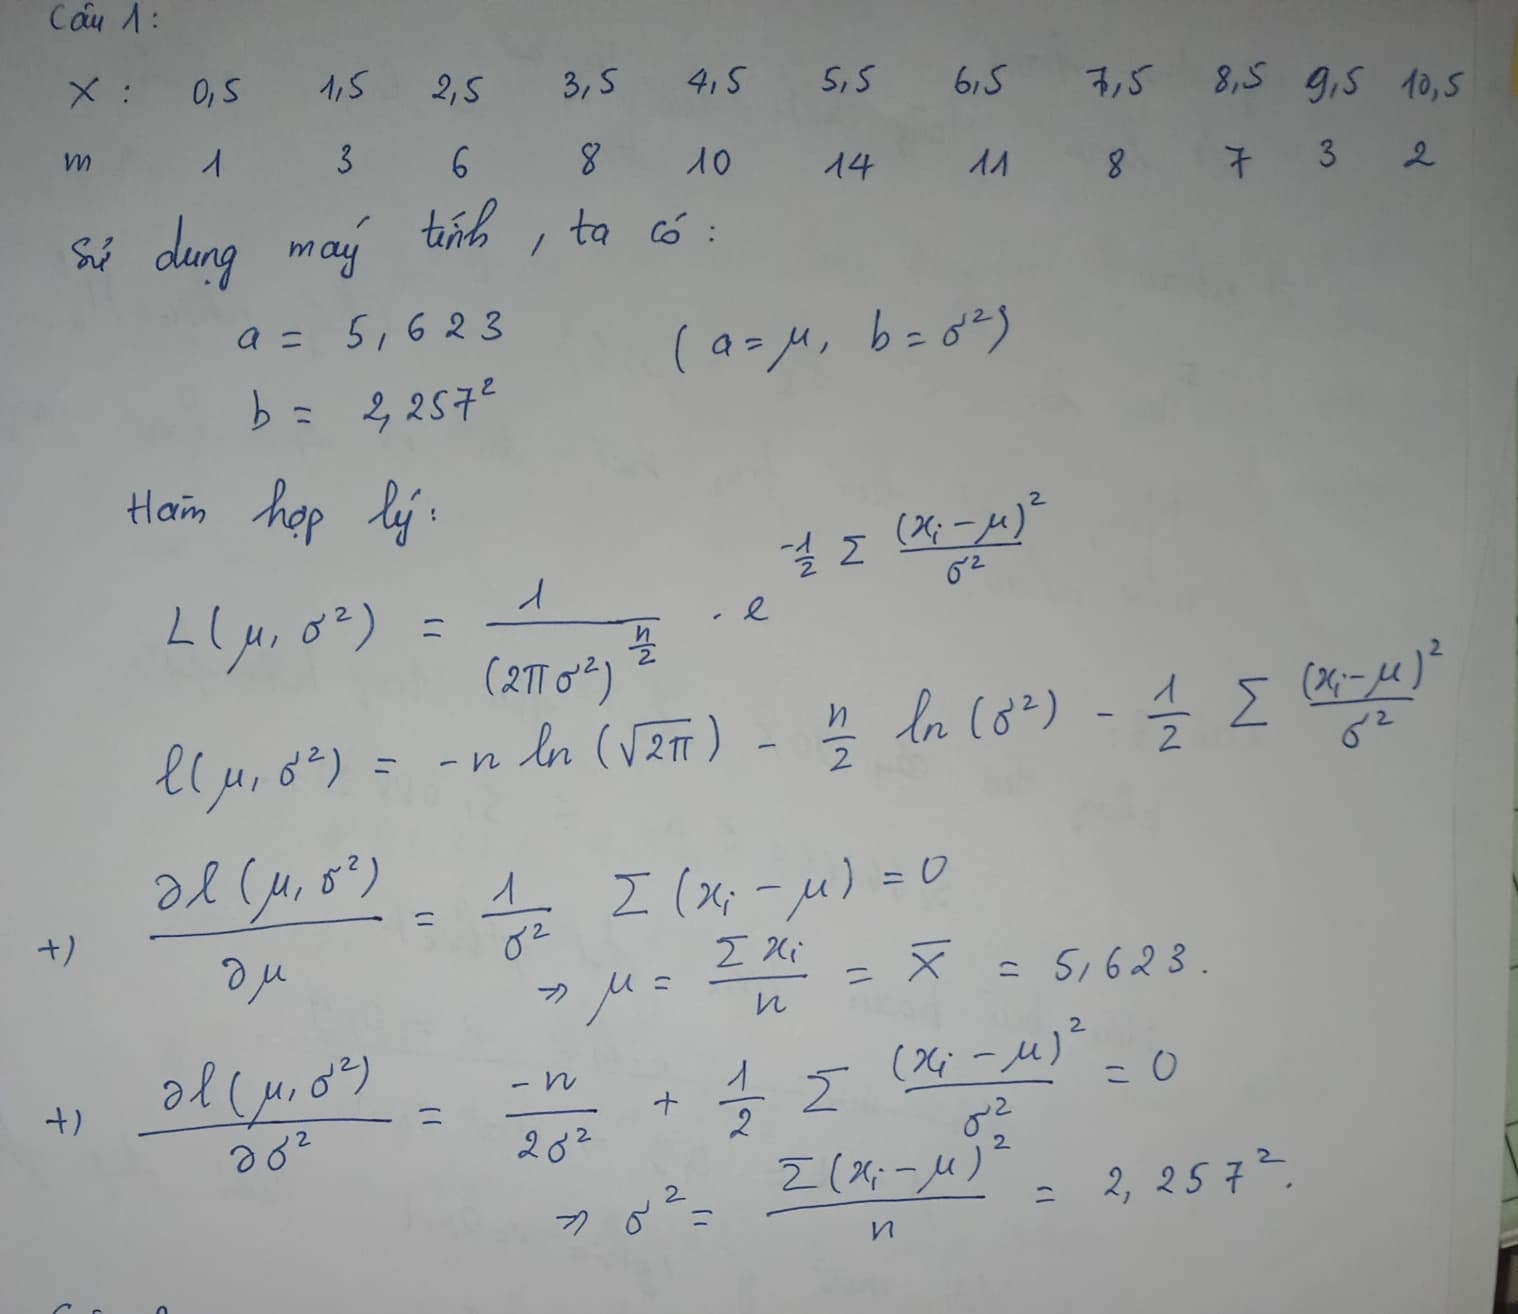 Câu 1:
X : 0,5 1,5 2,5 3,5 4,5 5,5 6,5 7,5 8,5 9,5 10,5
m 1 3 6 8 10 14 11 8 7 3 2
Sử dụng máy tính, ta có:
a = 5,623 (a = μ, b = σ²)
b = 2,257²
Hàm hợp lý:
L(μ, σ²) = 1/(2πσ²)^(n/2) . e^(-1/2 Σ (xᵢ - μ)²/σ²)
l(μ, σ²) = -n ln(√2π) - n/2 ln(σ²) - 1/2 Σ (xᵢ - μ)²/σ²
+) ∂l(μ, σ²)/∂μ = 1/σ² Σ(xᵢ - μ) = 0
⇒ μ = Σxᵢ/n = X̄ = 5,623.
+) ∂l(μ, σ²)/∂σ² = -n/2σ² + 1/2 Σ (xᵢ - μ)²/σ² = 0
⇒ σ² = Σ(xᵢ - μ)²/n = 2,257².